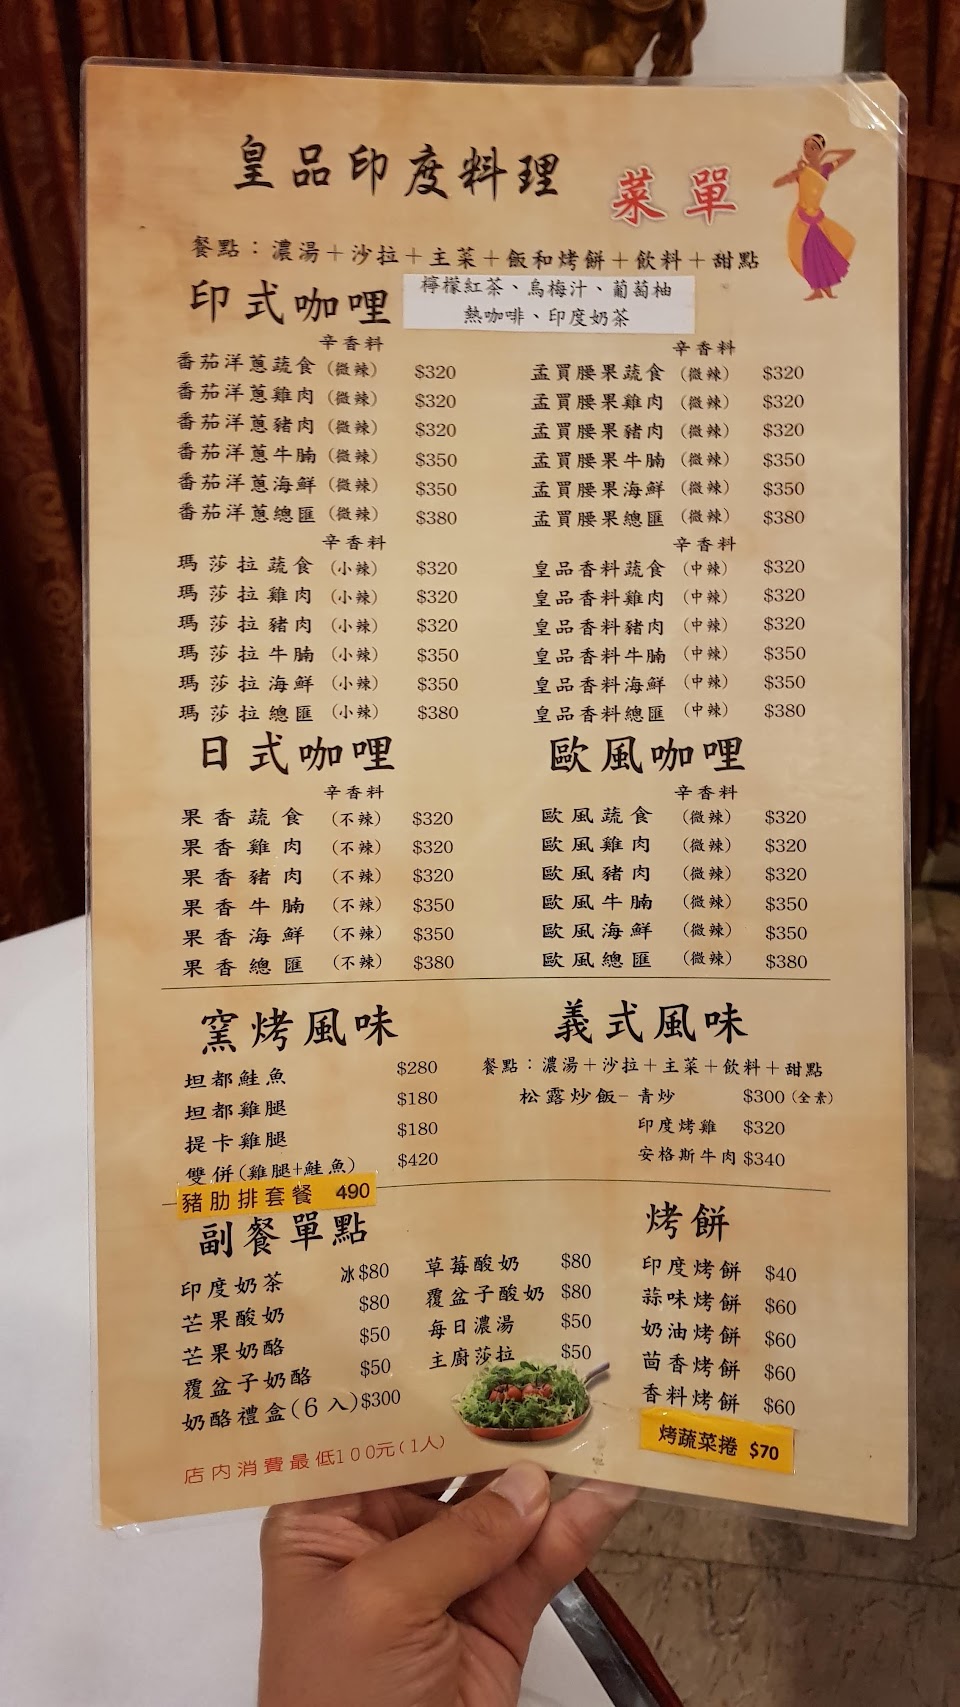 皇品印度料理 菜單
餐點：濃湯＋沙拉＋主菜＋飯和烤餅＋飲料＋甜點
印式咖哩
檸檬紅茶、烏梅汁、葡萄柚
熱咖啡、印度奶茶
辛香料
番茄洋蔥蔬食 (微辣) $320
番茄洋蔥雞肉 (微辣) $320
番茄洋蔥豬肉 (微辣) $320
番茄洋蔥牛腩 (微辣) $350
番茄洋蔥海鮮 (微辣) $350
番茄洋蔥總匯 (微辣) $380
辛香料
孟買腰果蔬食 (微辣) $320
孟買腰果雞肉 (微辣) $320
孟買腰果豬肉 (微辣) $320
孟買腰果牛腩 (微辣) $350
孟買腰果海鮮 (微辣) $350
孟買腰果總匯 (微辣) $380
辛香料
瑪莎拉蔬食 (小辣) $320
瑪莎拉雞肉 (小辣) $320
瑪莎拉豬肉 (小辣) $320
瑪莎拉牛腩 (小辣) $350
瑪莎拉海鮮 (小辣) $350
瑪莎拉總匯 (小辣) $380
辛香料
皇品香料蔬食 (中辣) $320
皇品香料雞肉 (中辣) $320
皇品香料豬肉 (中辣) $320
皇品香料牛腩 (中辣) $350
皇品香料海鮮 (中辣) $350
皇品香料總匯 (中辣) $380
日式咖哩
辛香料
果香蔬食 (不辣) $320
果香雞肉 (不辣) $320
果香豬肉 (不辣) $320
果香牛腩 (不辣) $350
果香海鮮 (不辣) $350
果香總匯 (不辣) $380
歐風咖哩
辛香料
歐風蔬食 (微辣) $320
歐風雞肉 (微辣) $320
歐風豬肉 (微辣) $320
歐風牛腩 (微辣) $350
歐風海鮮 (微辣) $350
歐風總匯 (微辣) $380
窯烤風味
坦都鮭魚 $280
坦都雞腿 $180
提卡雞腿 $180
雙併(雞腿+鮭魚) $420
豬肋排套餐 490
義式風味
餐點：濃湯＋沙拉＋主菜＋飲料＋甜點
松露炒飯－青炒 $300 (全素)
印度烤雞 $320
安格斯牛肉 $340
副餐單點
印度奶茶 冰$80
芒果酸奶 $80
芒果奶酪 $50
覆盆子奶酪 $50
奶酪禮盒(6入) $300
草莓酸奶 $80
覆盆子酸奶 $80
每日濃湯 $50
主廚莎拉 $50
烤餅
印度烤餅 $40
蒜味烤餅 $60
奶油烤餅 $60
茴香烤餅 $60
香料烤餅 $60
烤蔬菜捲 $70
店內消費最低100元(1人)